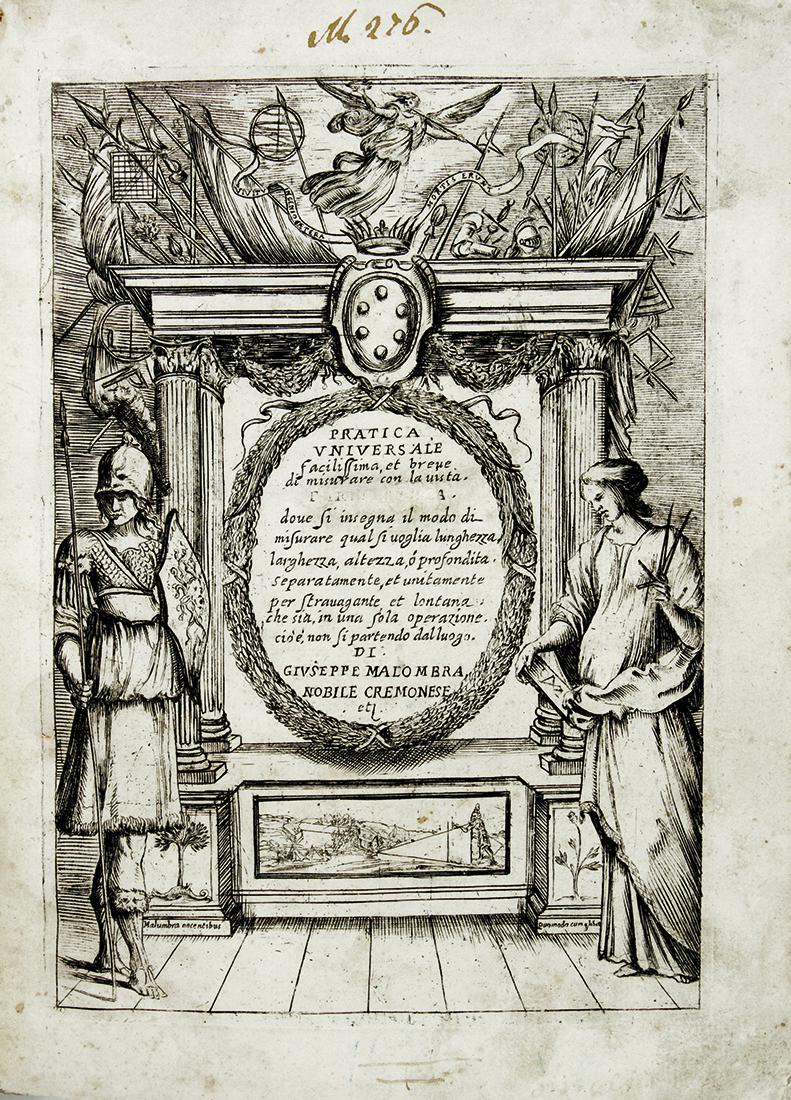 M. 276.
PRATICA
VNIVERSALE
facilissima, et breue.
de misurare con la uista.
doue si insegna il modo di
misurare qual si uoglia lunghezza,
larghezza, altezza, ó profondita.
separatamente, et unitamente
per strauagante et lontana
che sia, in una sola operazione.
cioè, non si partendo dal luogo.
DI
GIVSEPPE MALOMBRA
NOBILE CREMONESE
etc.
Malumbra nocentibus